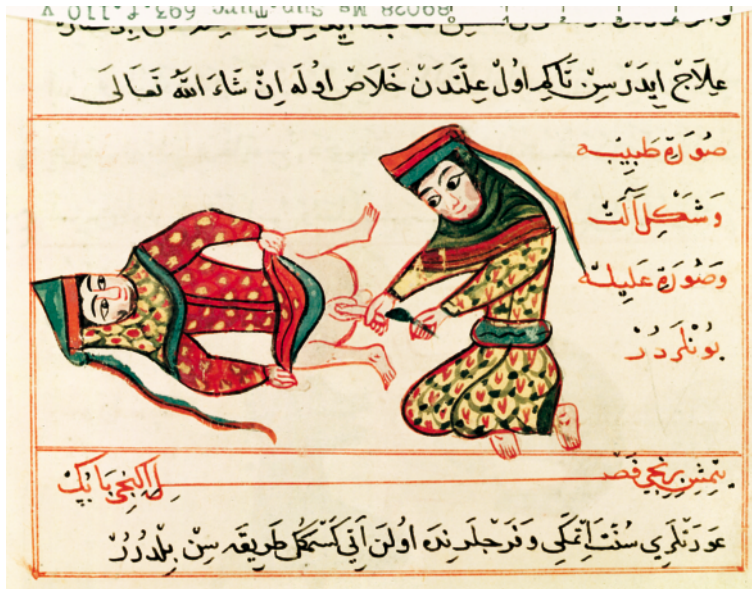 89028 Ms Sup. Turc 693 f.110 v
علاج ايدرسن تاكم اول علتدن خلاص اوله ان شاء الله تعالى
صورة طبيبه
وشكل آلت
وصورة عليله
بونلردر
يتمش برنجي فصل ايكنجي بابك
عورتلري سنت اتمكي وفرجلرنده اولن اتي كسمكك طريقه سن بلدرر